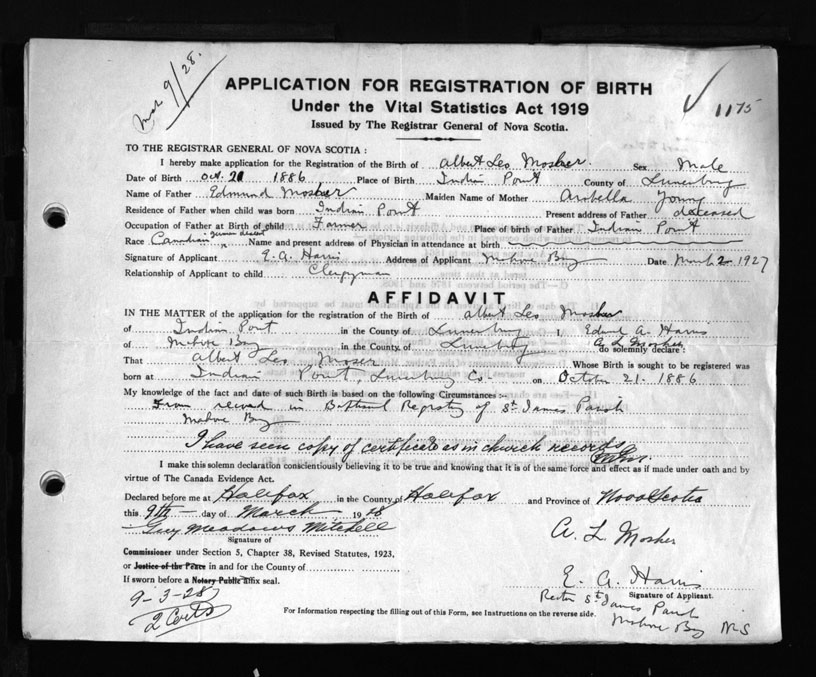 Mar 9/28.
APPLICATION FOR REGISTRATION OF BIRTH
Under the Vital Statistics Act 1919
1175
Issued by The Registrar General of Nova Scotia.
TO THE REGISTRAR GENERAL OF NOVA SCOTIA :
I hereby make application for the Registration of the Birth of Albert Leo Mosher. Sex Male
Date of Birth Oct. 21 1886 Place of Birth Indian Point County of Lunenburg
Name of Father Edmund Mosher Maiden Name of Mother Arabella Young
Residence of Father when child was born Indian Point Present address of Father deceased
Occupation of Father at Birth of child Farmer Place of birth of Father Indian Point
german descent
Race Canadian Name and present address of Physician in attendance at birth
Signature of Applicant E. A. Harris Address of Applicant Mahone Bay Date March 2 1927
Relationship of Applicant to child Clergyman
AFFIDAVIT
IN THE MATTER of the application for the registration of the Birth of Albert Leo Mosher
of Indian Point in the County of Lunenburg I, Edward A. Harris
A L Mosher
of Mahone Bay in the County of Lunenburg do solemnly declare :
That Albert Leo Moser Whose Birth is sought to be registered was
born at Indian Point, Lunenburg Co. on October 21. 1886
My knowledge of the fact and date of such Birth is based on the following Circumstances :-
From record in Baptismal Registry of St James Parish
Mahone Bay
I have seen copy of certificate as in church records
I make this solemn declaration conscientiously believing it to be true and knowing that it is of the same force and effect as if made under oath and by
virtue of The Canada Evidence Act.
Declared before me at Halifax in the County of Halifax and Province of Nova Scotia
this 9th day of March 1928
Guy Meadows Mitchell
A. L Mosher
Signature of
Commissioner under Section 5, Chapter 38, Revised Statutes, 1923,
or Justice of the Peace in and for the County of
E. A. Harris
If sworn before a Notary Public affix seal.
Signature of Applicant.
Rector St James Parish
Mahone Bay NS
9-3-28
2 Certs
For Information respecting the filling out of this Form, see Instructions on the reverse side.